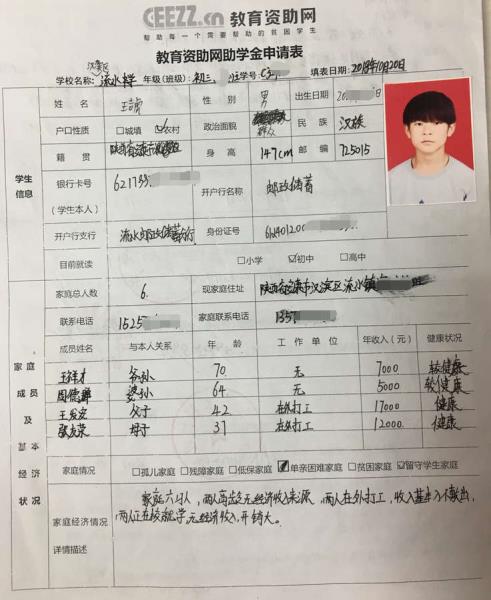 CEEZZ.cn 教育资助网
帮助每一个需要帮助的贫困学生
教育资助网助学金申请表
学校名称: 流水中学 年级(班级): 初二 学号: 填表日期: 2018年10月20日
学生信息
姓 名 性 别 男 出生日期
户口性质 □城镇 ☑农村 政治面貌 群众 民 族 汉族
籍 贯 身 高 147cm 邮 编 725015
银行卡号 (学生本人) 621799 开户行名称 邮政储蓄
开户行支行 流水邮政储蓄 身份证号
目前就读 □小学 ☑初中 □高中
家庭总人数 6 现家庭住址 汉滨区流水镇
联系电话 1525 家庭联系电话 1357
家庭成员及基本经济状况
成员姓名 与本人关系 年 龄 工 作 单 位 年收入(元) 健康状况
爷孙 70 无 7000 较健康
婆孙 64 无 5000 较健康
父子 42 在外打工 17000 健康
母子 37 在外打工 12000 健康
家庭情况 □孤儿家庭 □残障家庭 □低保家庭 ☑单亲困难家庭 □贫困家庭 ☑留守学生家庭
家庭经济情况详情描述
家庭六口人，两人高龄无经济收入来源，两人在外打工，收入基本入不敷出，
两人正在校就学，无经济收入，开销大。